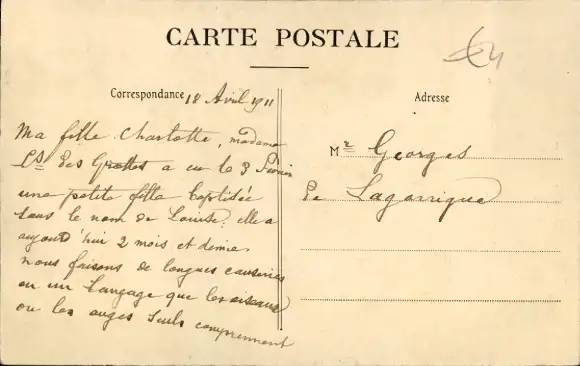 CARTE POSTALE
€4
Correspondance 18 Avril 1911
Adresse
Ma fille Charlotte, madame
des Grottes a eu le 3 Février
une petite fille baptisée
sous le nom de Louise. elle a
aujourd'hui 2 mois et demie
nous faisons de longues causeries
en un langage que les oiseaux
ou les anges seuls comprennent
Mr Georges
De Lagarrigue